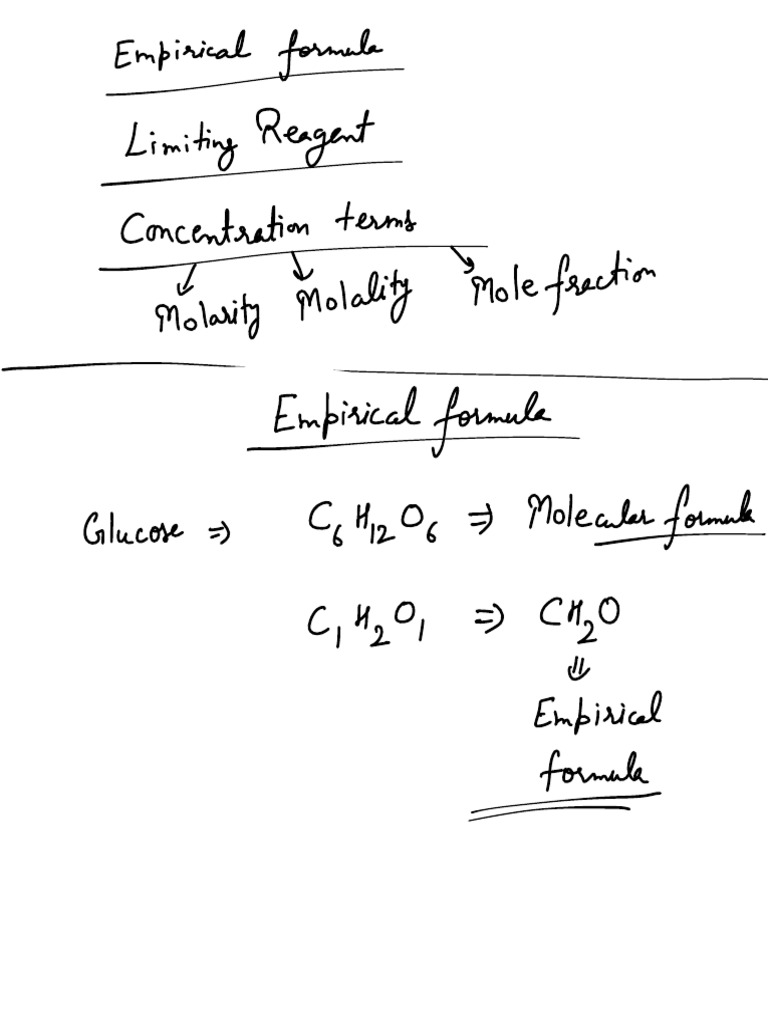 Empirical formula
Limiting Reagent
Concentration terms
Molarity Molality Mole fraction
Empirical formula
Glucose ⇒ C₆H₁₂O₆ ⇒ Molecular formula
C₁H₂O₁ ⇒ CH₂O
⇓
Empirical
formula